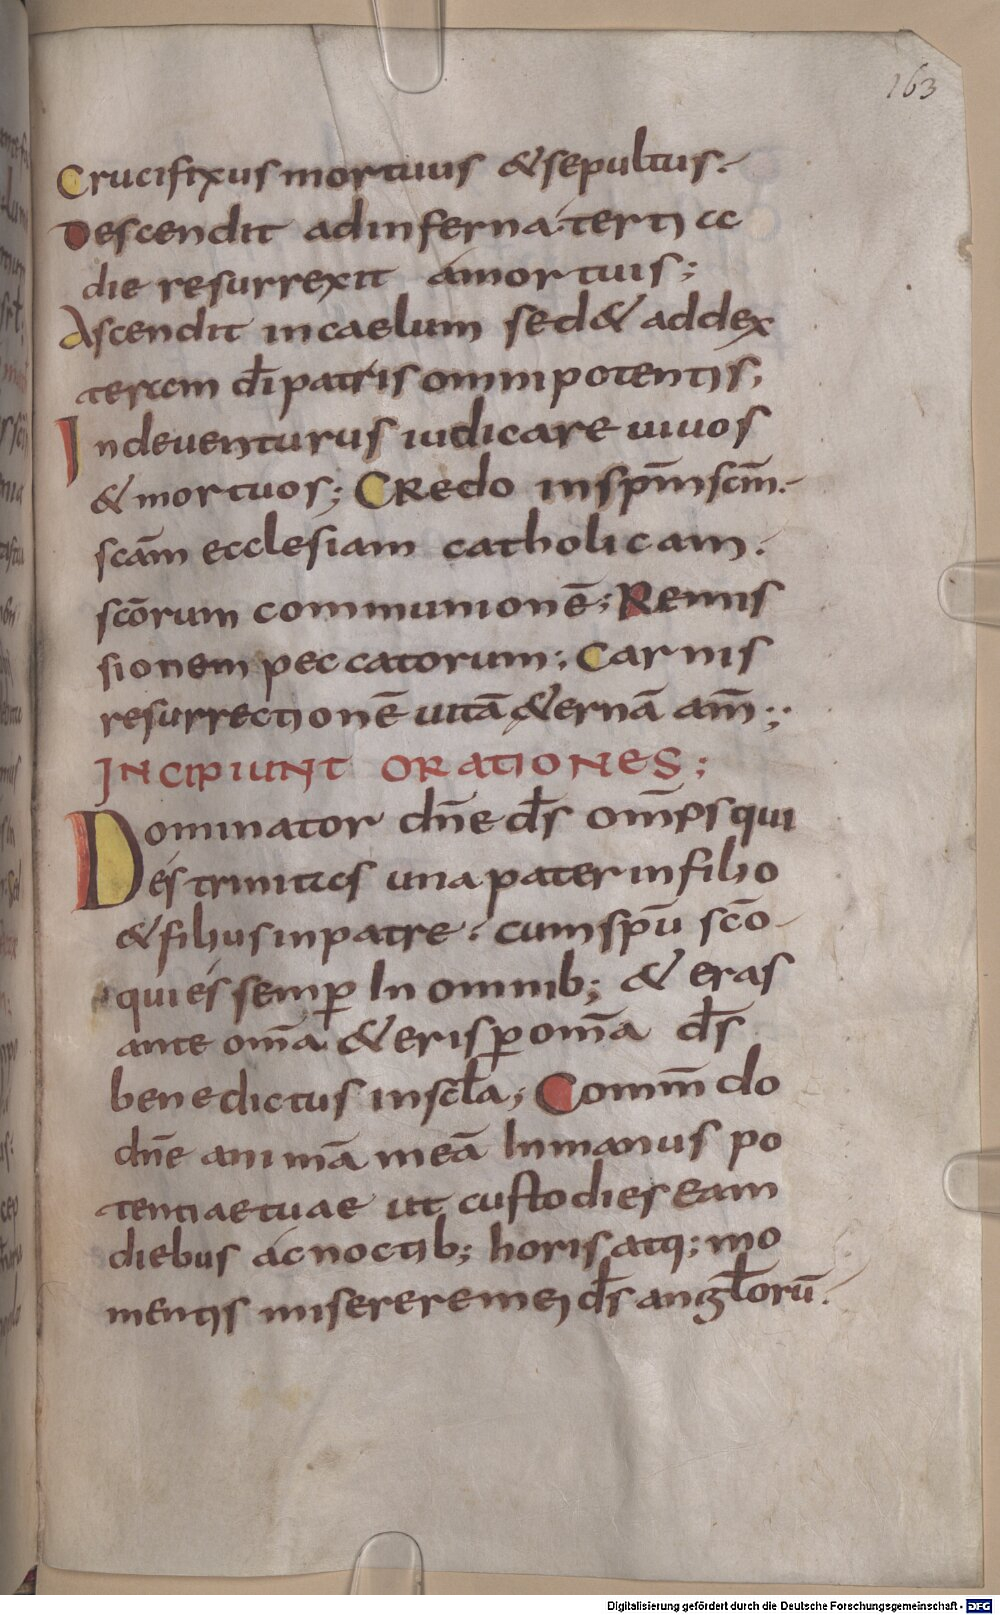 163
Crucifixus mortuus & sepultus.
Descendit ad inferna. tertia
die resurrexit á mortuis;
Ascendit in caelum sed& ad dex
teram dī patris omnipotentis;
Inde uenturus iudicare uiuos
& mortuos; CRedo in spm̄ scm̄.
scām ecclesiam catholicam.
scōrum communionē; Remis
sionem peccatorum; Carnis
resurrectionē uitā &ernā am̄;
INCIPIUNT ORATIONES;
Dominator dn̄e d̄s om̄ps qui
és trinitas una pater in filio
& filius in patre. cum spū scō
qui és semp̄ In omnib; & eras
ante om̄a & eris p̄ om̄a d̄s
benedictus in scl̄a; Comm̄do
dn̄e animā meā In manus po
tentiae tuae ut custodies eam
diebus ác noctib; horis atq; mo
mentis miserere mei d̄s angl̄orū.
Digitalisierung gefördert durch die Deutsche Forschungsgemeinschaft - DFG